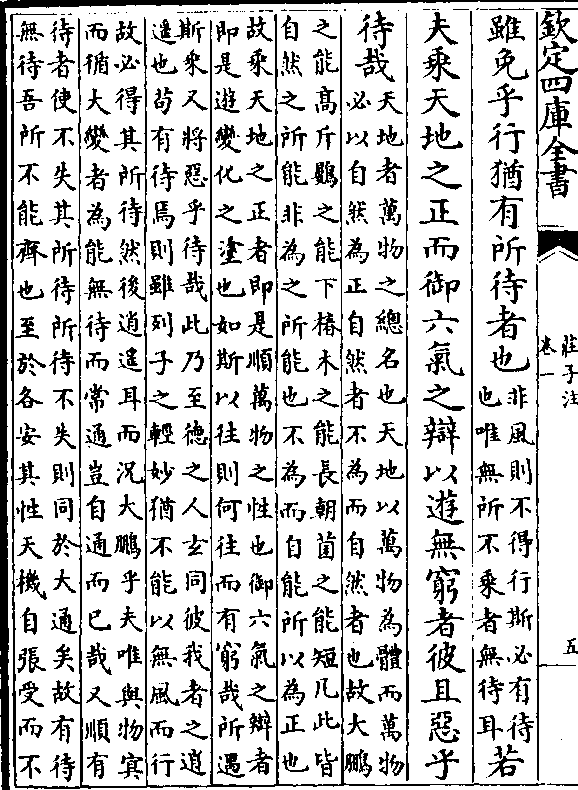 欽定四庫全書
莊子注
卷一
五
雖免乎行猶有所待者也非風則不得行斯必有待
也唯無所不乘者無待耳若
夫乘天地之正而御六氣之辯以遊無窮者彼且惡乎
待哉天地者萬物之總名也天地以萬物為體而萬物
必以自然為正自然者不為而自然者也故大鵬
之能髙斥鷃之能下椿木之能長朝菌之能短凡此皆
自然之所能非為之所能也不為而自能所以為正也
故乘天地之正者即是順萬物之性也御六氣之辯者
即是遊變化之塗也如斯以往則何往而有窮哉所遇
斯乘又將惡乎待哉此乃至德之人玄同彼我者之逍
遥也茍有待焉則雖列子之輕妙猶不能以無風而行
故必得其所待然後逍遥耳而況大鵬乎夫唯與物㝠
而循大變者為能無待而常通豈自通而已哉又順有
待者使不失其所待所待不失則同於大通矣故有待
無待吾所不能齊也至於各安其性天機自張受而不